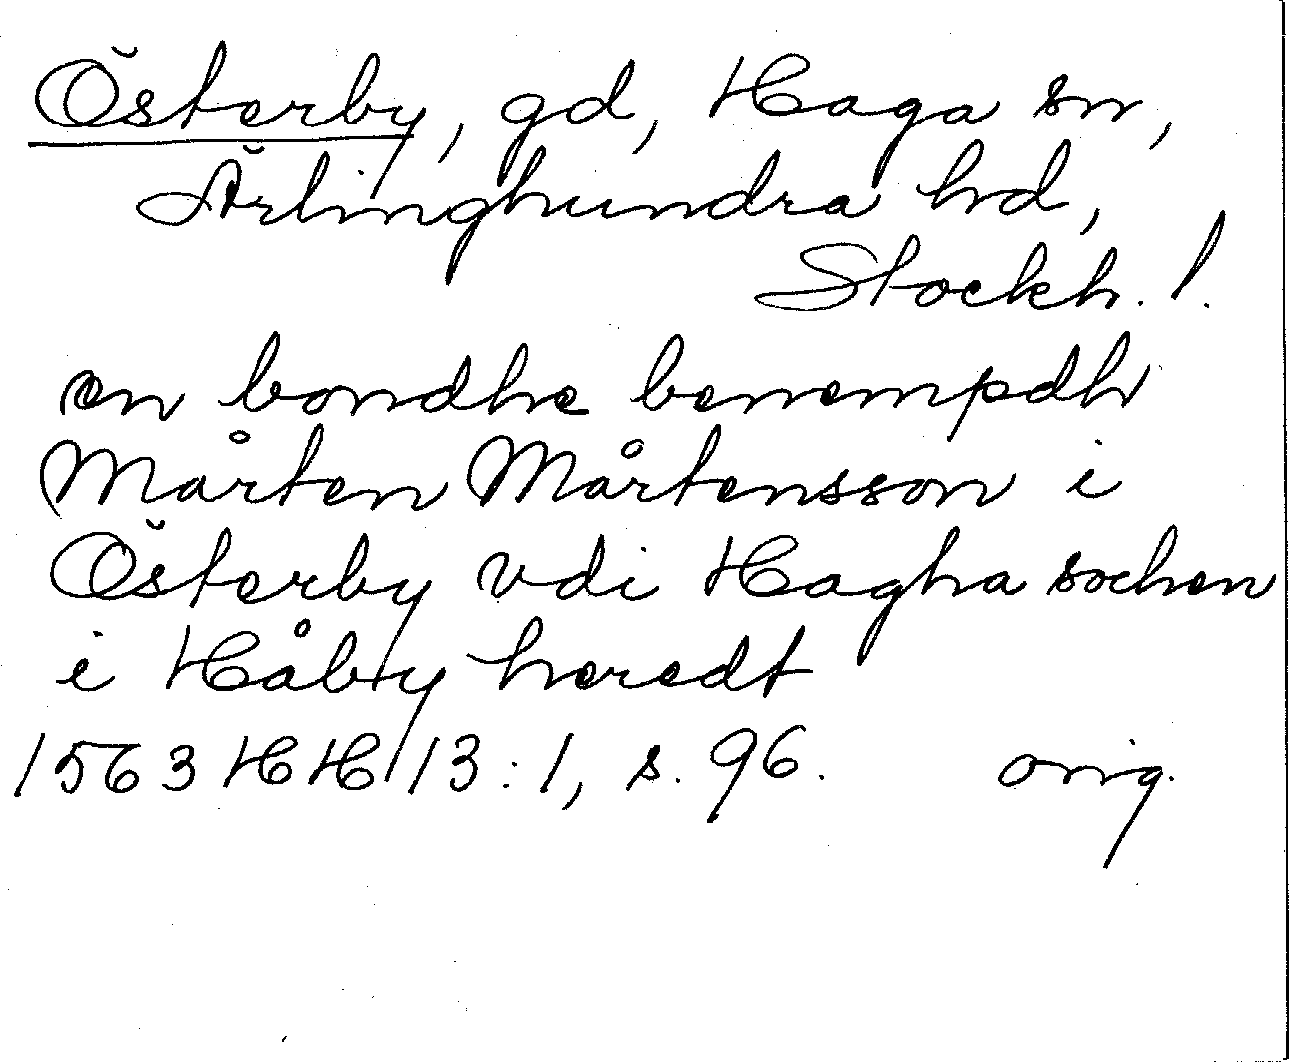 Österby, gd, Haga sn,
Ärlinghundra hd,
Stockh. l.
en bondhe benempdh
Mårten Mårtensson i
Österby vdi Hagha sochen
i Håby heredt
1563 HH 13:1, s. 96. orig.